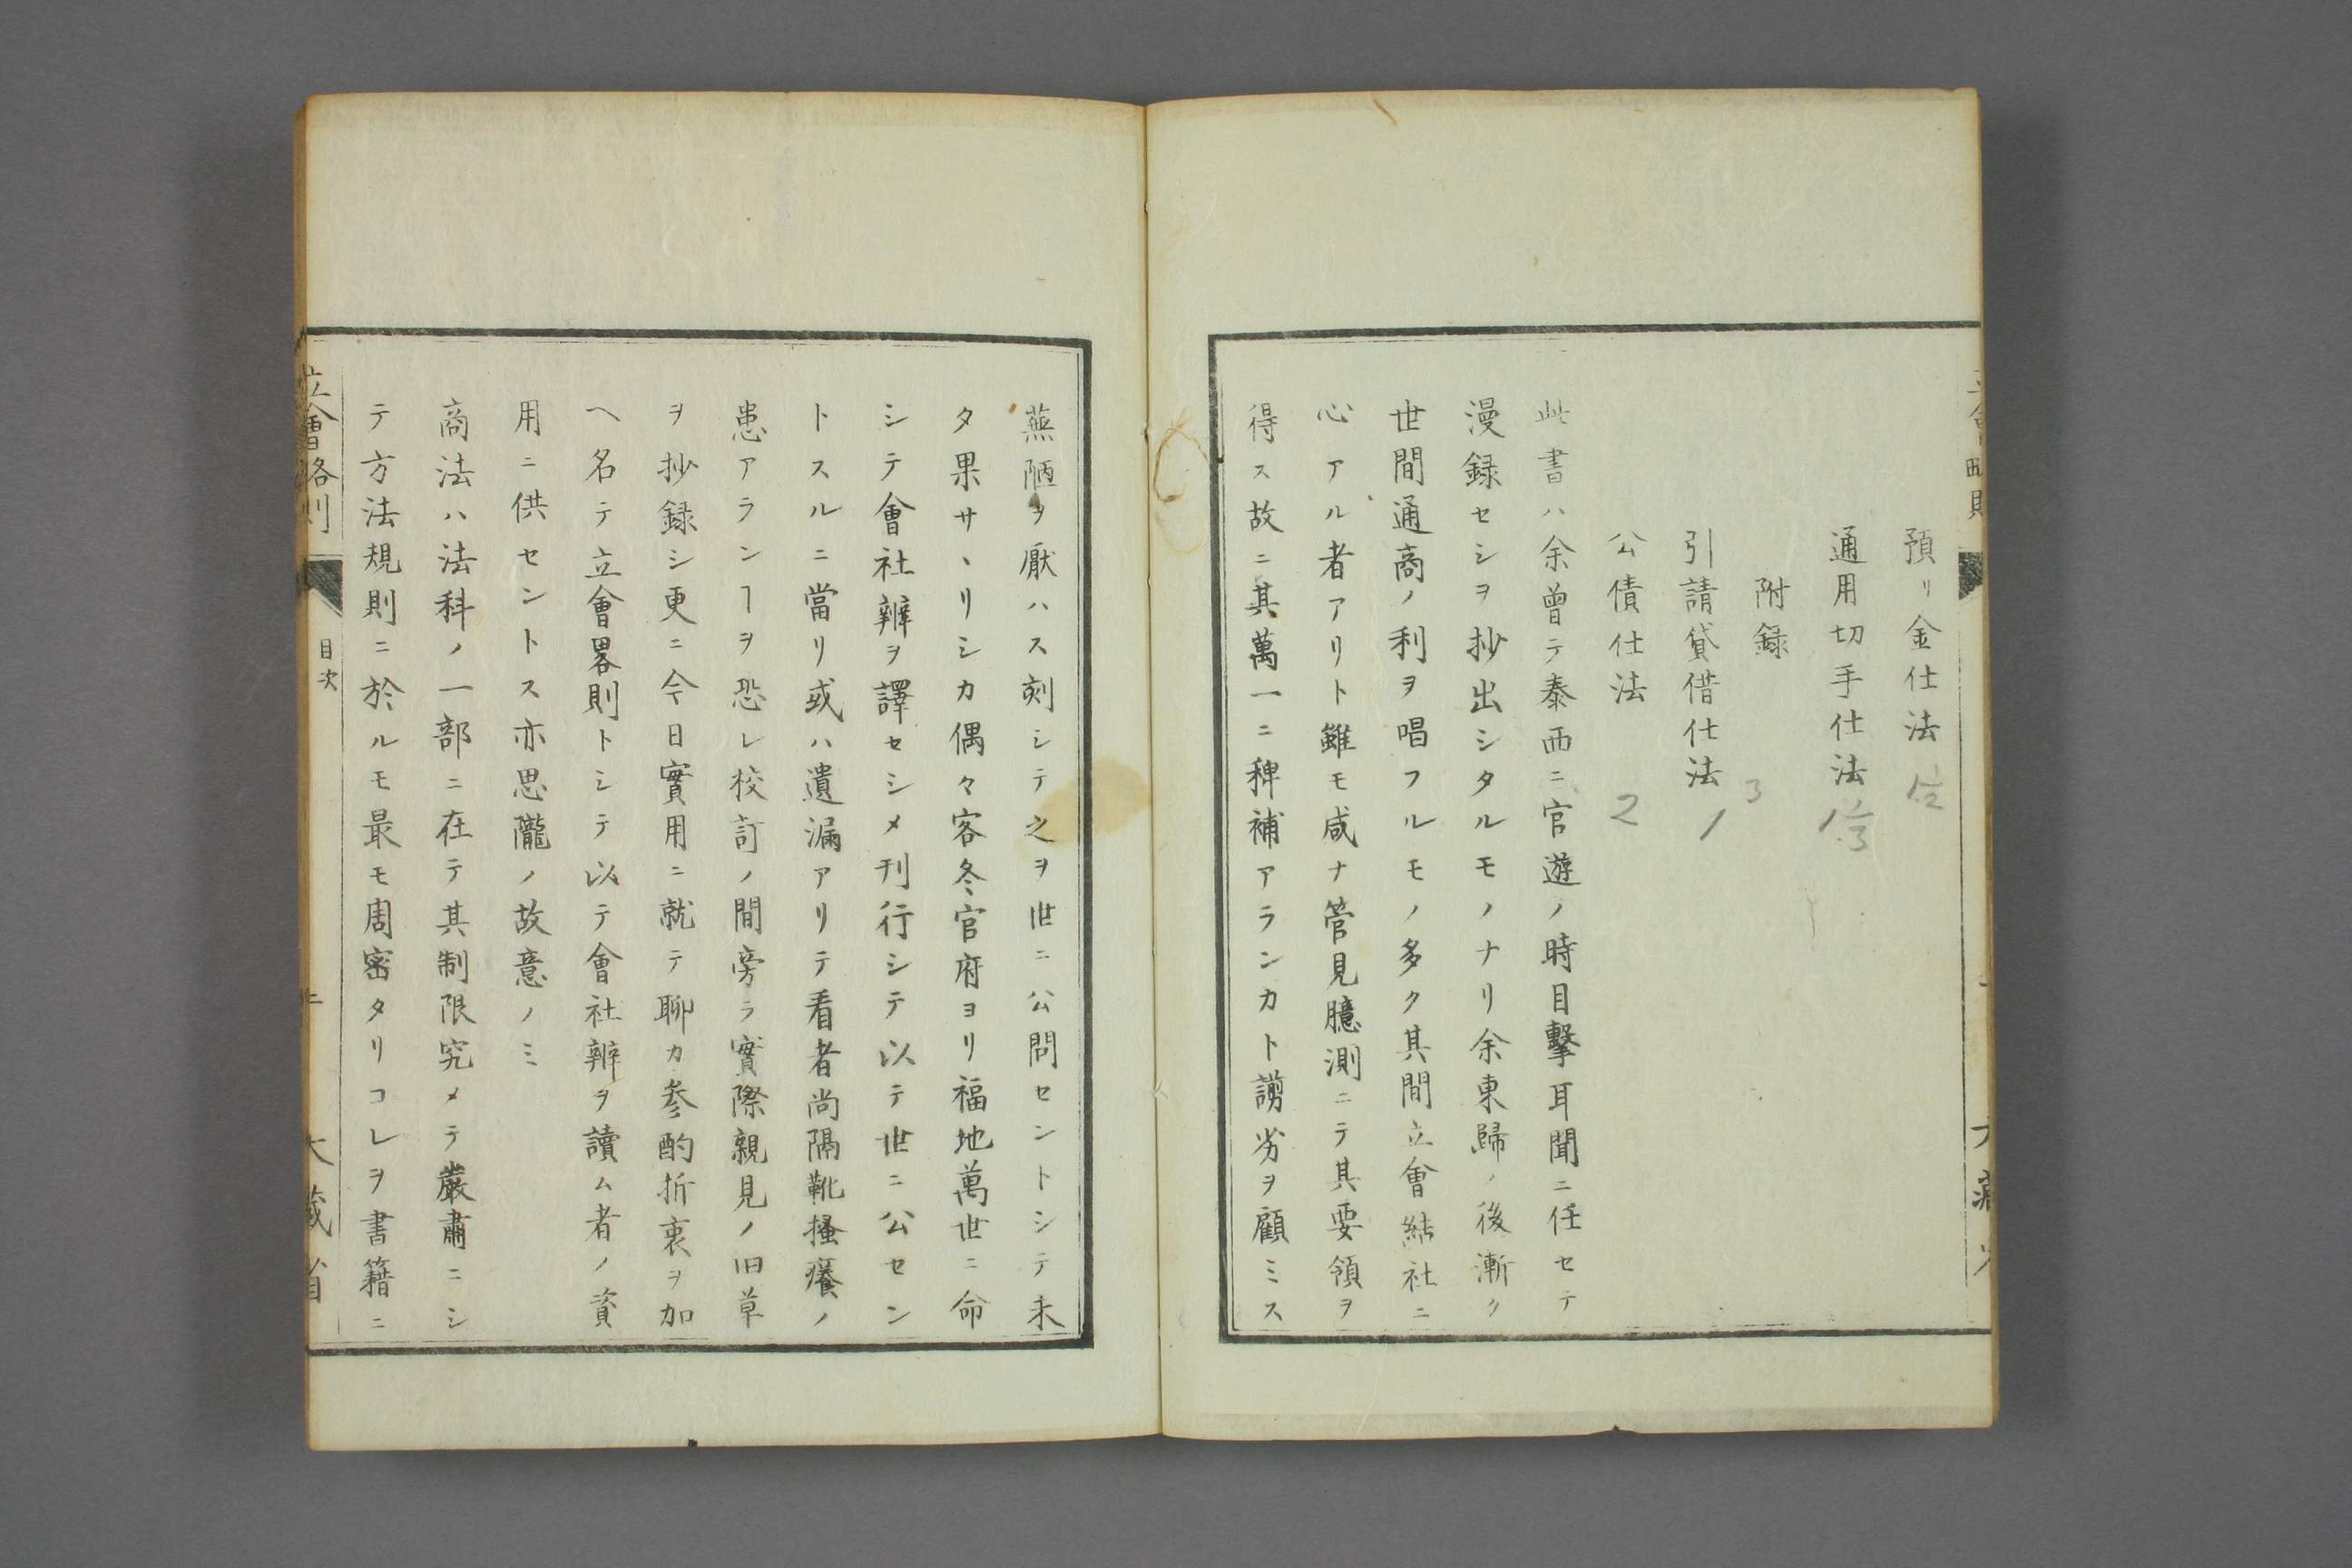 預リ金仕法
通用切手仕法
附録
引請貸借仕法
公債仕法
3
1
2
此書ハ余曾テ泰西ニ官遊ノ時目擊耳聞ニ任セテ
漫録セシヲ抄出シタルモノナリ余東歸ノ後漸ク
世間通商ノ利ヲ唱フルモノ多ク其間立會結社ニ
心アル者アリト雖モ咸ナ管見臆測ニテ其要領ヲ
得ス故ニ其萬一ニ稗補アランカト謭劣ヲ顧ミス
蕪陋ヲ厭ハス刻シテ之ヲ世ニ公問セントシテ未
タ果サヽリシカ偶々客冬官府ヨリ福地萬世ニ命
シテ會社辨ヲ譯セシメ刊行シテ以テ世ニ公セン
トスルニ當リ或ハ遺漏アリテ看者尚隔靴搔癢ノ
患アランヿヲ恐レ校訂ノ間旁ラ實際親見ノ旧草
ヲ抄録シ更ニ今日實用ニ就テ聊カ参酌折衷ヲ加
ヘ名テ立會畧則トシテ以テ會社辨ヲ讀ム者ノ資
用ニ供セントス亦思隴ノ故意ノミ
商法ハ法科ノ一部ニ在テ其制限究メテ嚴肅ニシ
テ方法規則ニ於ルモ最モ周密タリコレヲ書籍ニ
立會略則
目次
大藏省